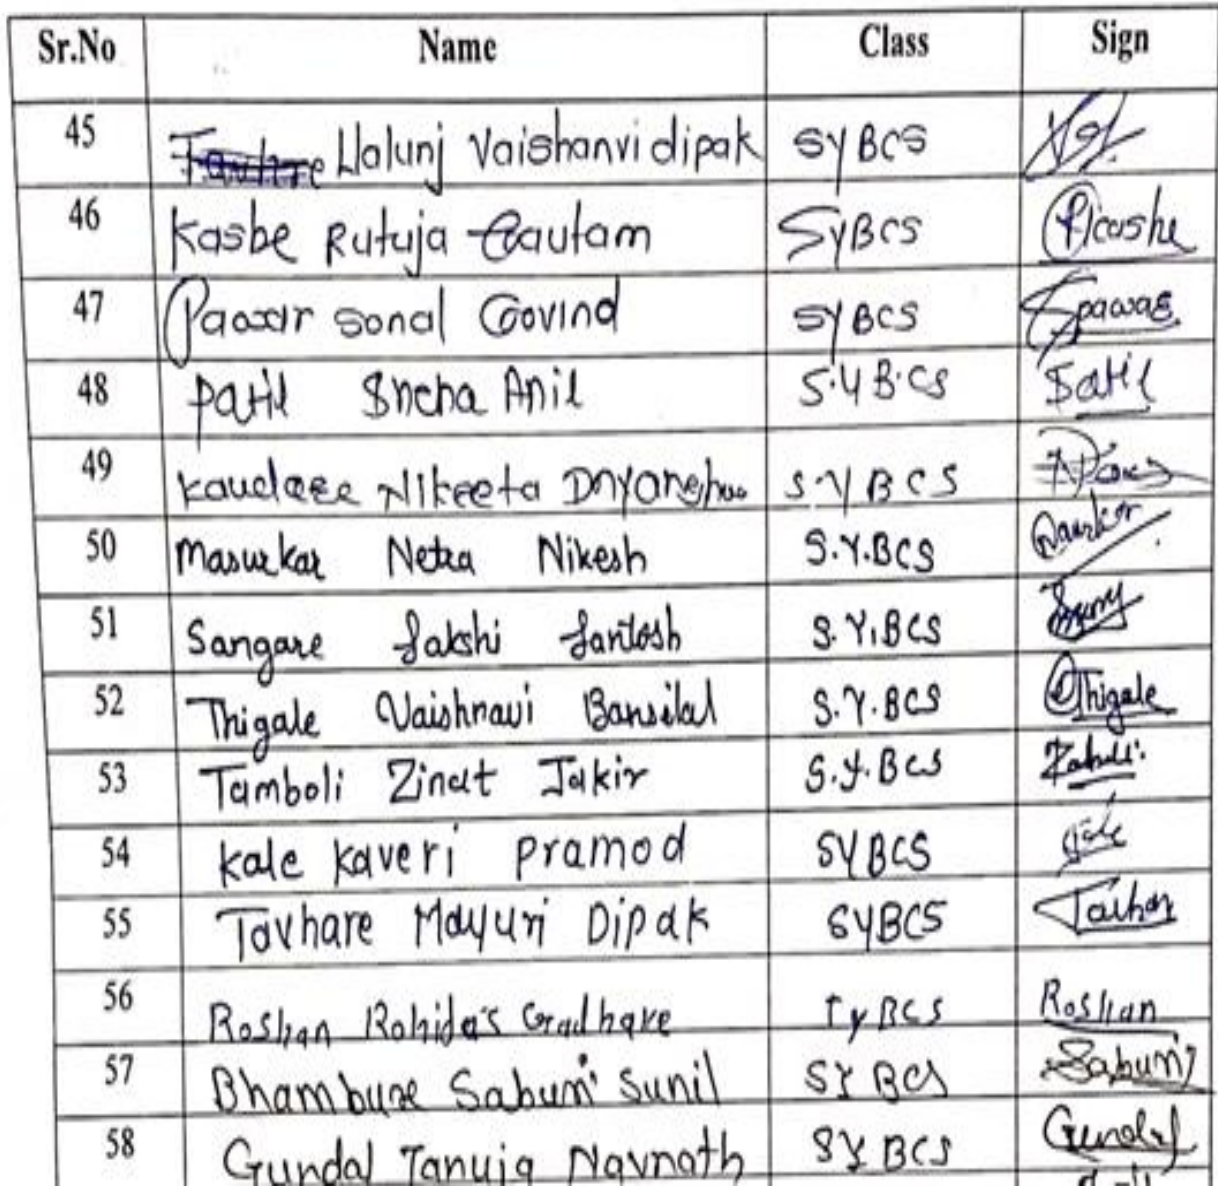 Sr.No Name Class Sign
45 Walunj Vaishanvi dipak SYBCS
46 Kasbe Rutuja Gautam SYBCS
47 Pawar Sonal Govind SYBCS Spawar
48 Patil Sneha Anil S.Y B.CS Satil
49 Nikeeta S.Y B C S
50 Masurkar Netra Nikesh S.Y.BCS
51 Sangare Sakshi Santosh S.Y.BCS
52 Thigale Vaishnavi Bansilal S.Y.BCS Thigale
53 Tamboli Zinat Jakir S.Y.BCS
54 Kale Kaveri Pramod SYBCS
55 Tavhare Mayuri Dipak SYBCS
56 Roshan Rohidas Gadhave TyBCS Roshan
57 Bhambure Saburi Sunil SY BCS Saburi
58 Gundal Tanuja Navnath SY BCS Gundal